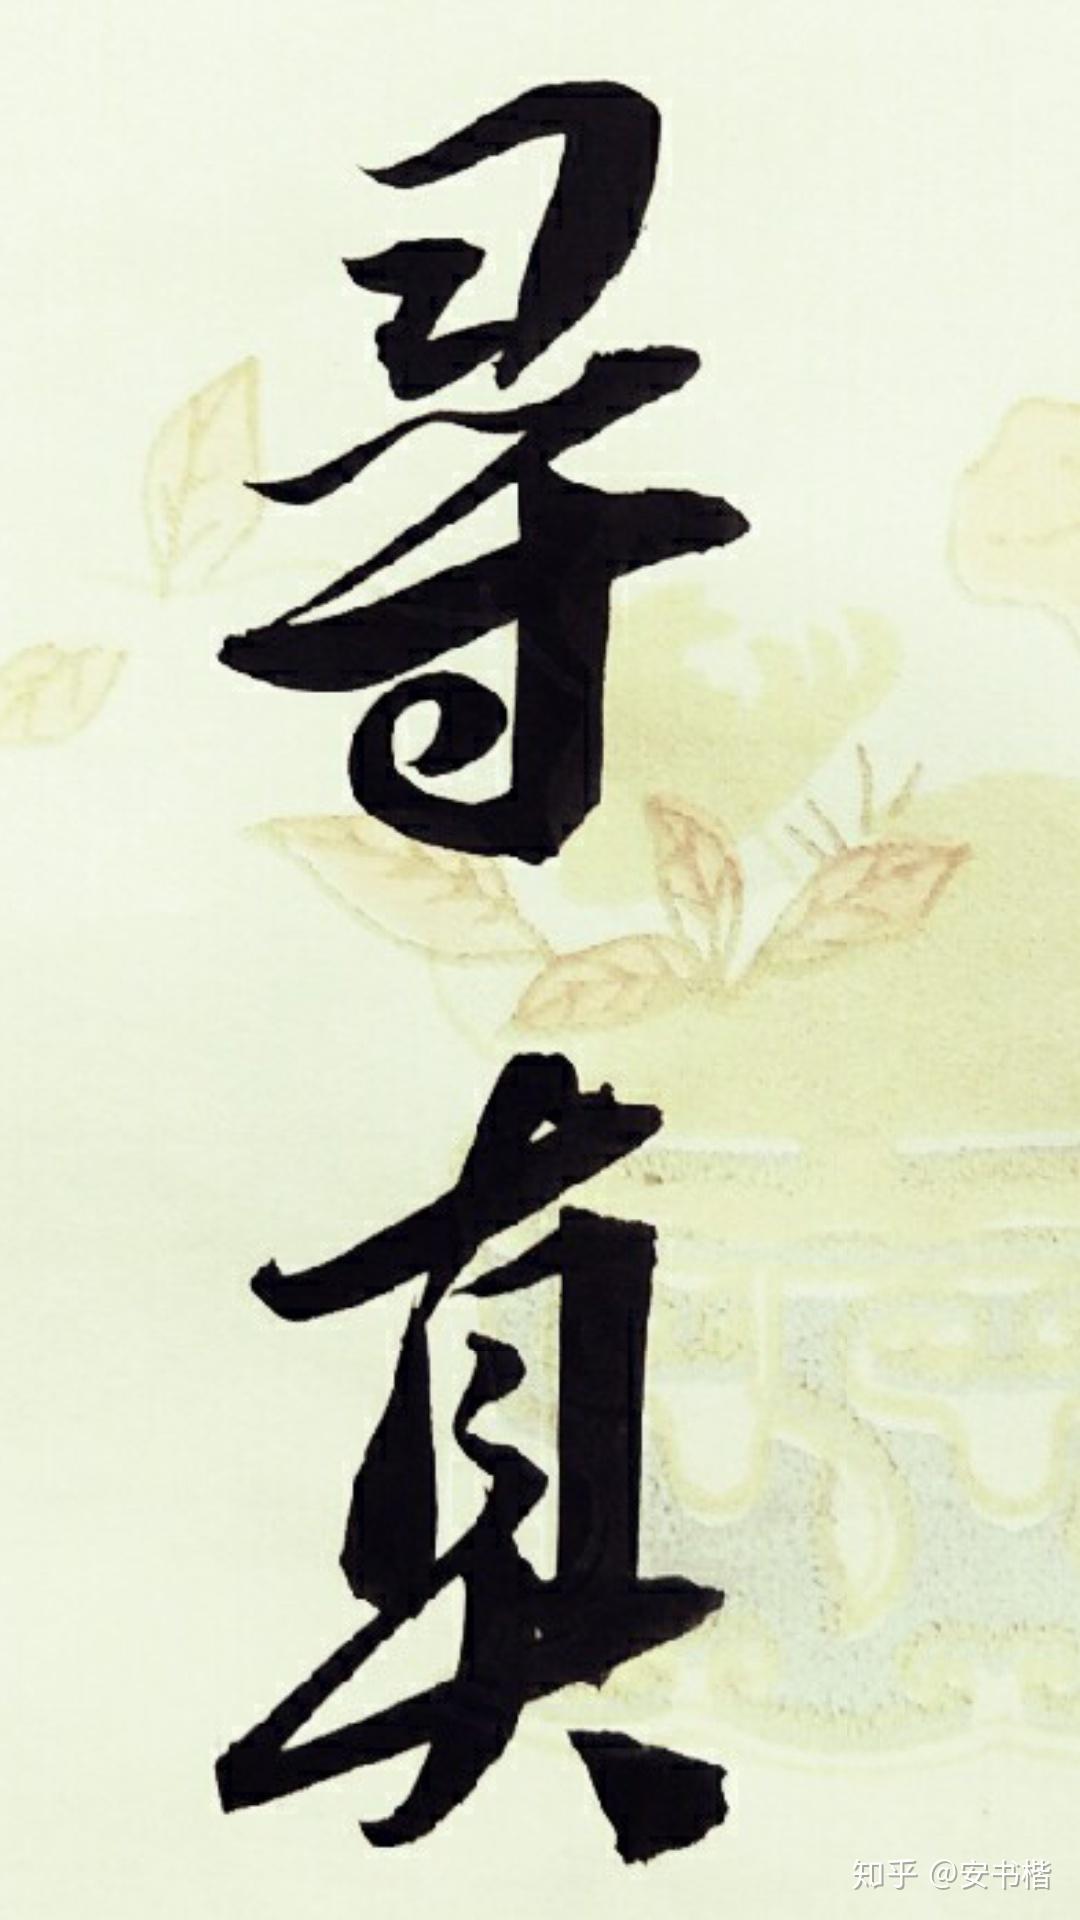 寻真
知乎 @安书楷